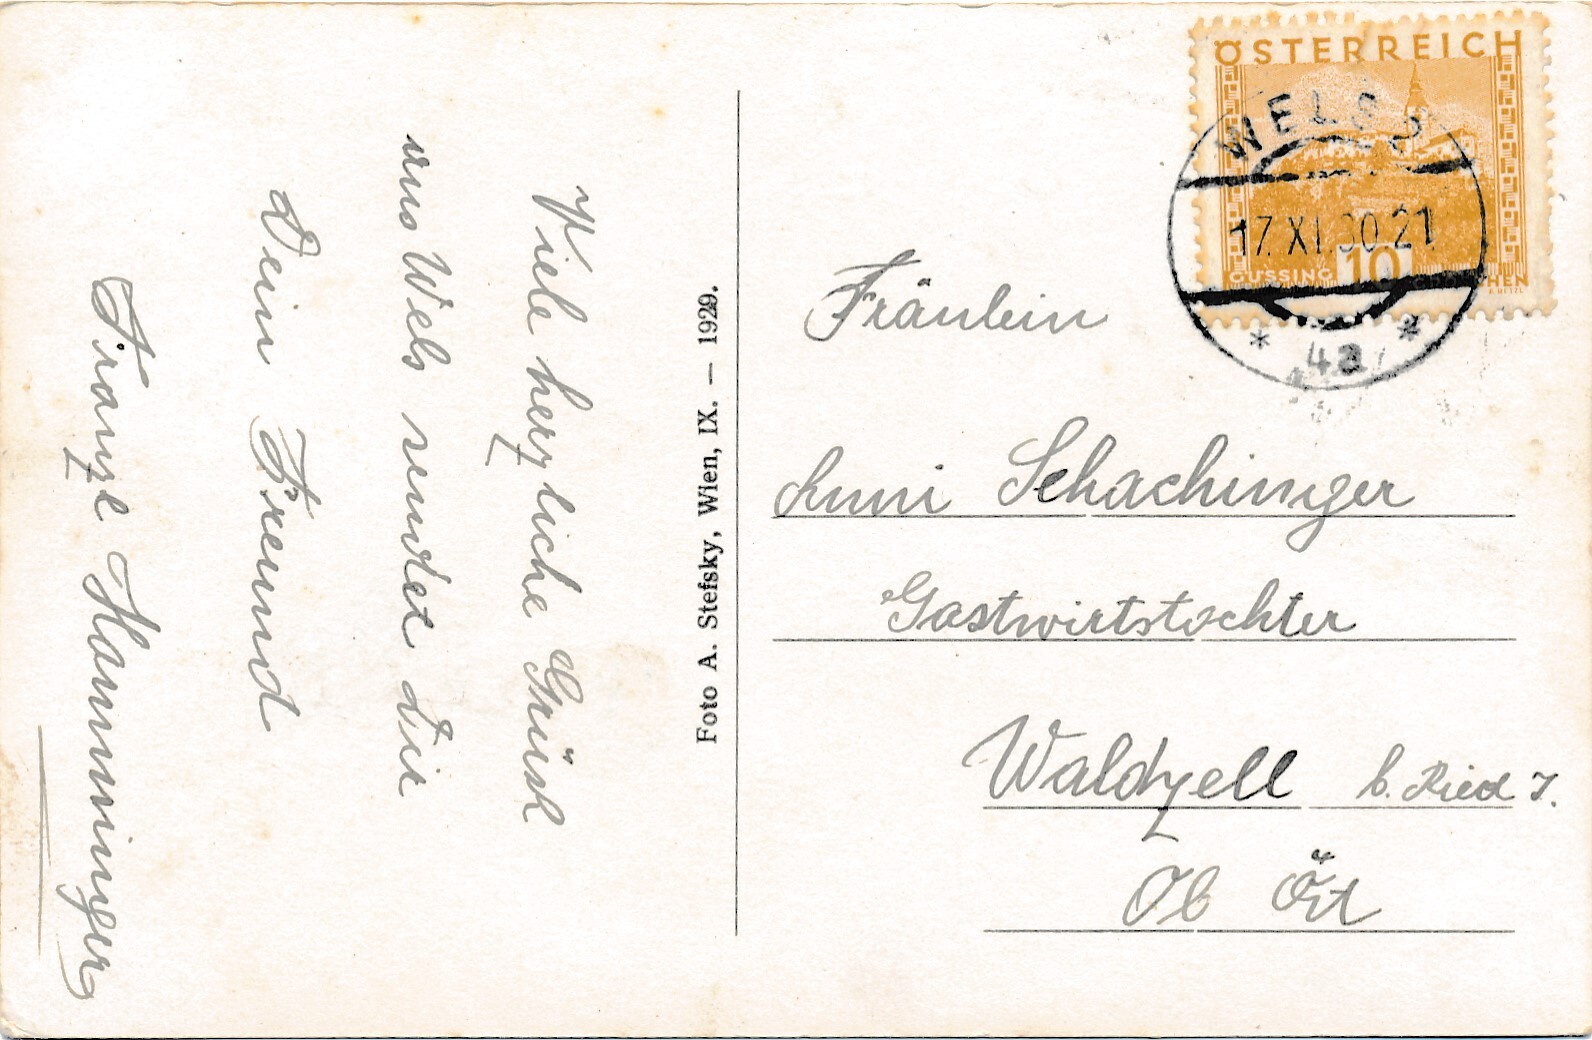 Viele herzliche Grüsse
aus Wels sendet Dir
Dein Freund
Franzl Hamminger
Foto A. Stefsky, Wien, IX. — 1929.
ÖSTERREICH
WELS 2
17.XI.30 21
GÜSSING 10 GROSCHEN
* 4a *
Fräulein
Anni Schachinger
Gastwirtstochter
Waldzell b. Ried I.
Ob Öst